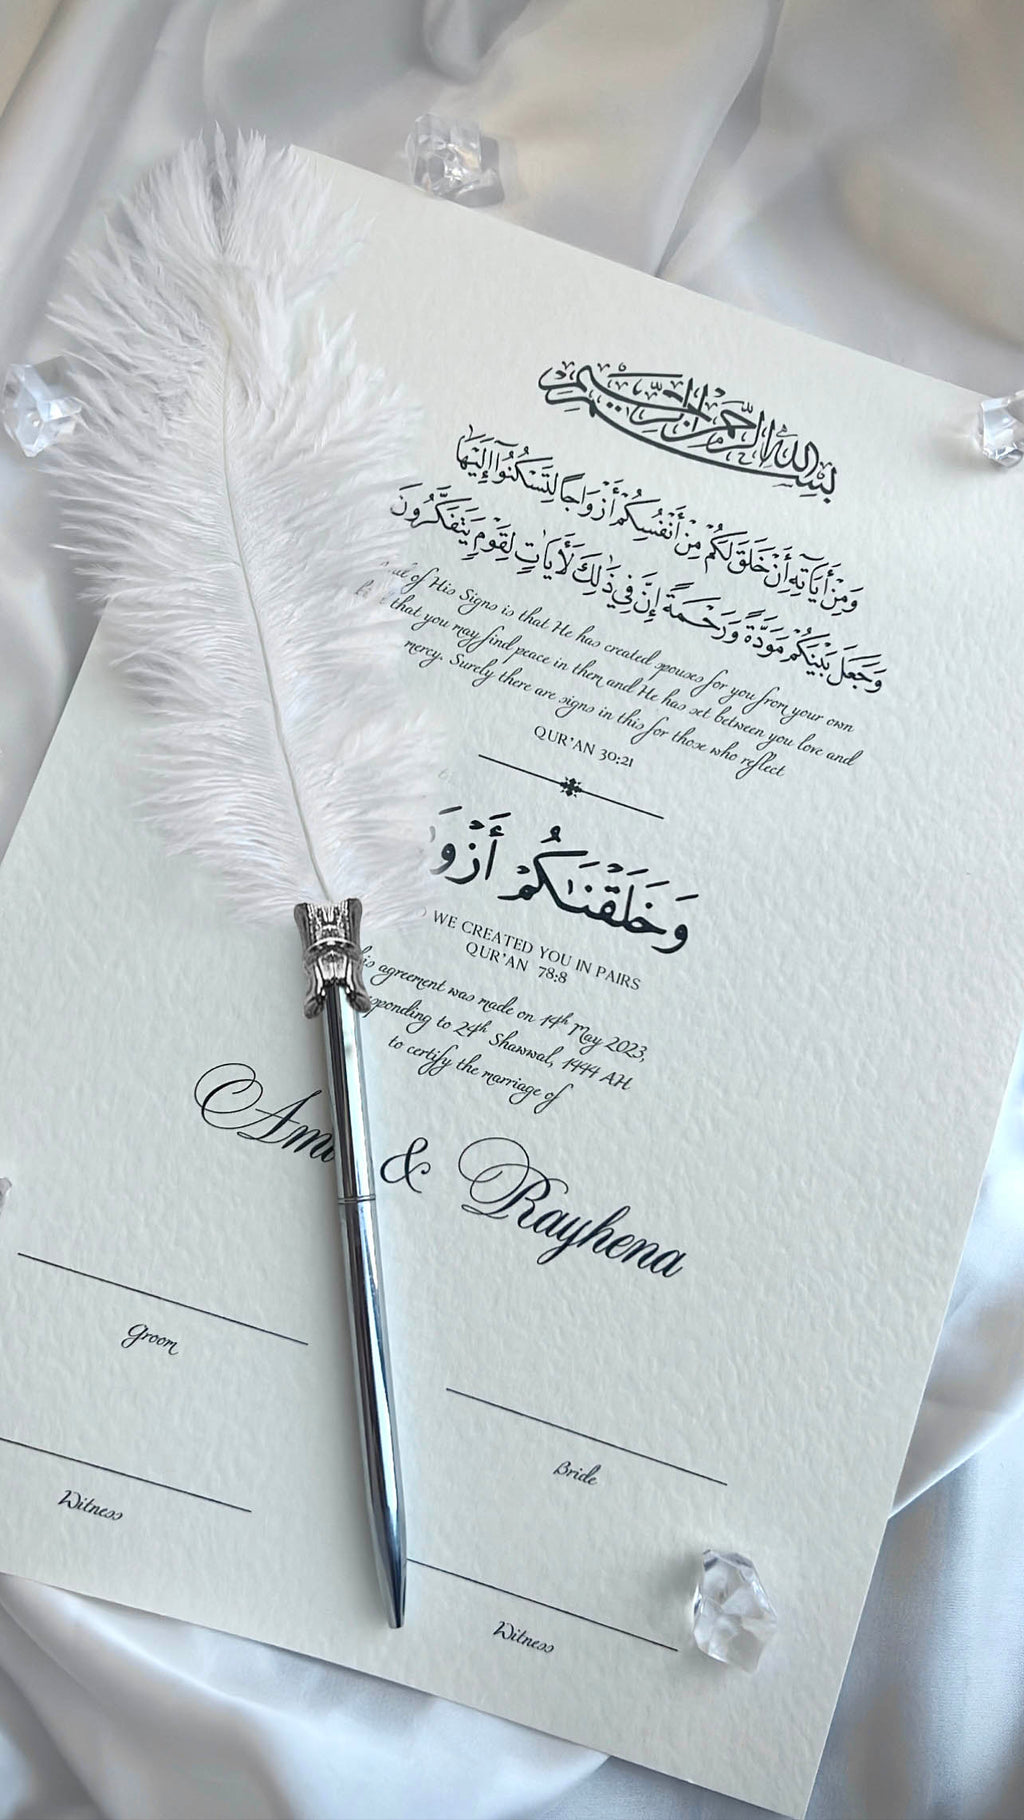 بسم الله الرحمن الرحيم
وَمِنْ أَيَاتِهِ أَنْ خَلَقَ لَكُمْ مِنْ أَنْفُسِكُمْ أَزْوَاجًا لِتَسْكُنُوا إِلَيْهَا
وَجَعَلَ بَيْنَكُمْ مَوَدَّةً وَرَحْمَةً إِنَّ فِي ذَلِكَ لَأَيَاتٍ لِقَوْمٍ يَتَفَكَّرُونَ
of His Signs is that He has created spouses for you from your own
that you may find peace in them and He has set between you love and
mercy. Surely there are signs in this for those who reflect
QUR'AN 30:21
وَخَلَقْنَاكُمْ
WE CREATED YOU IN PAIRS
QUR'AN 78:8
agreement was made on 14th May 2023,
to 24th Shawwal, 1444 AH
to certify the marriage of
& Rayhena
Groom
Bride
Witness
Witness